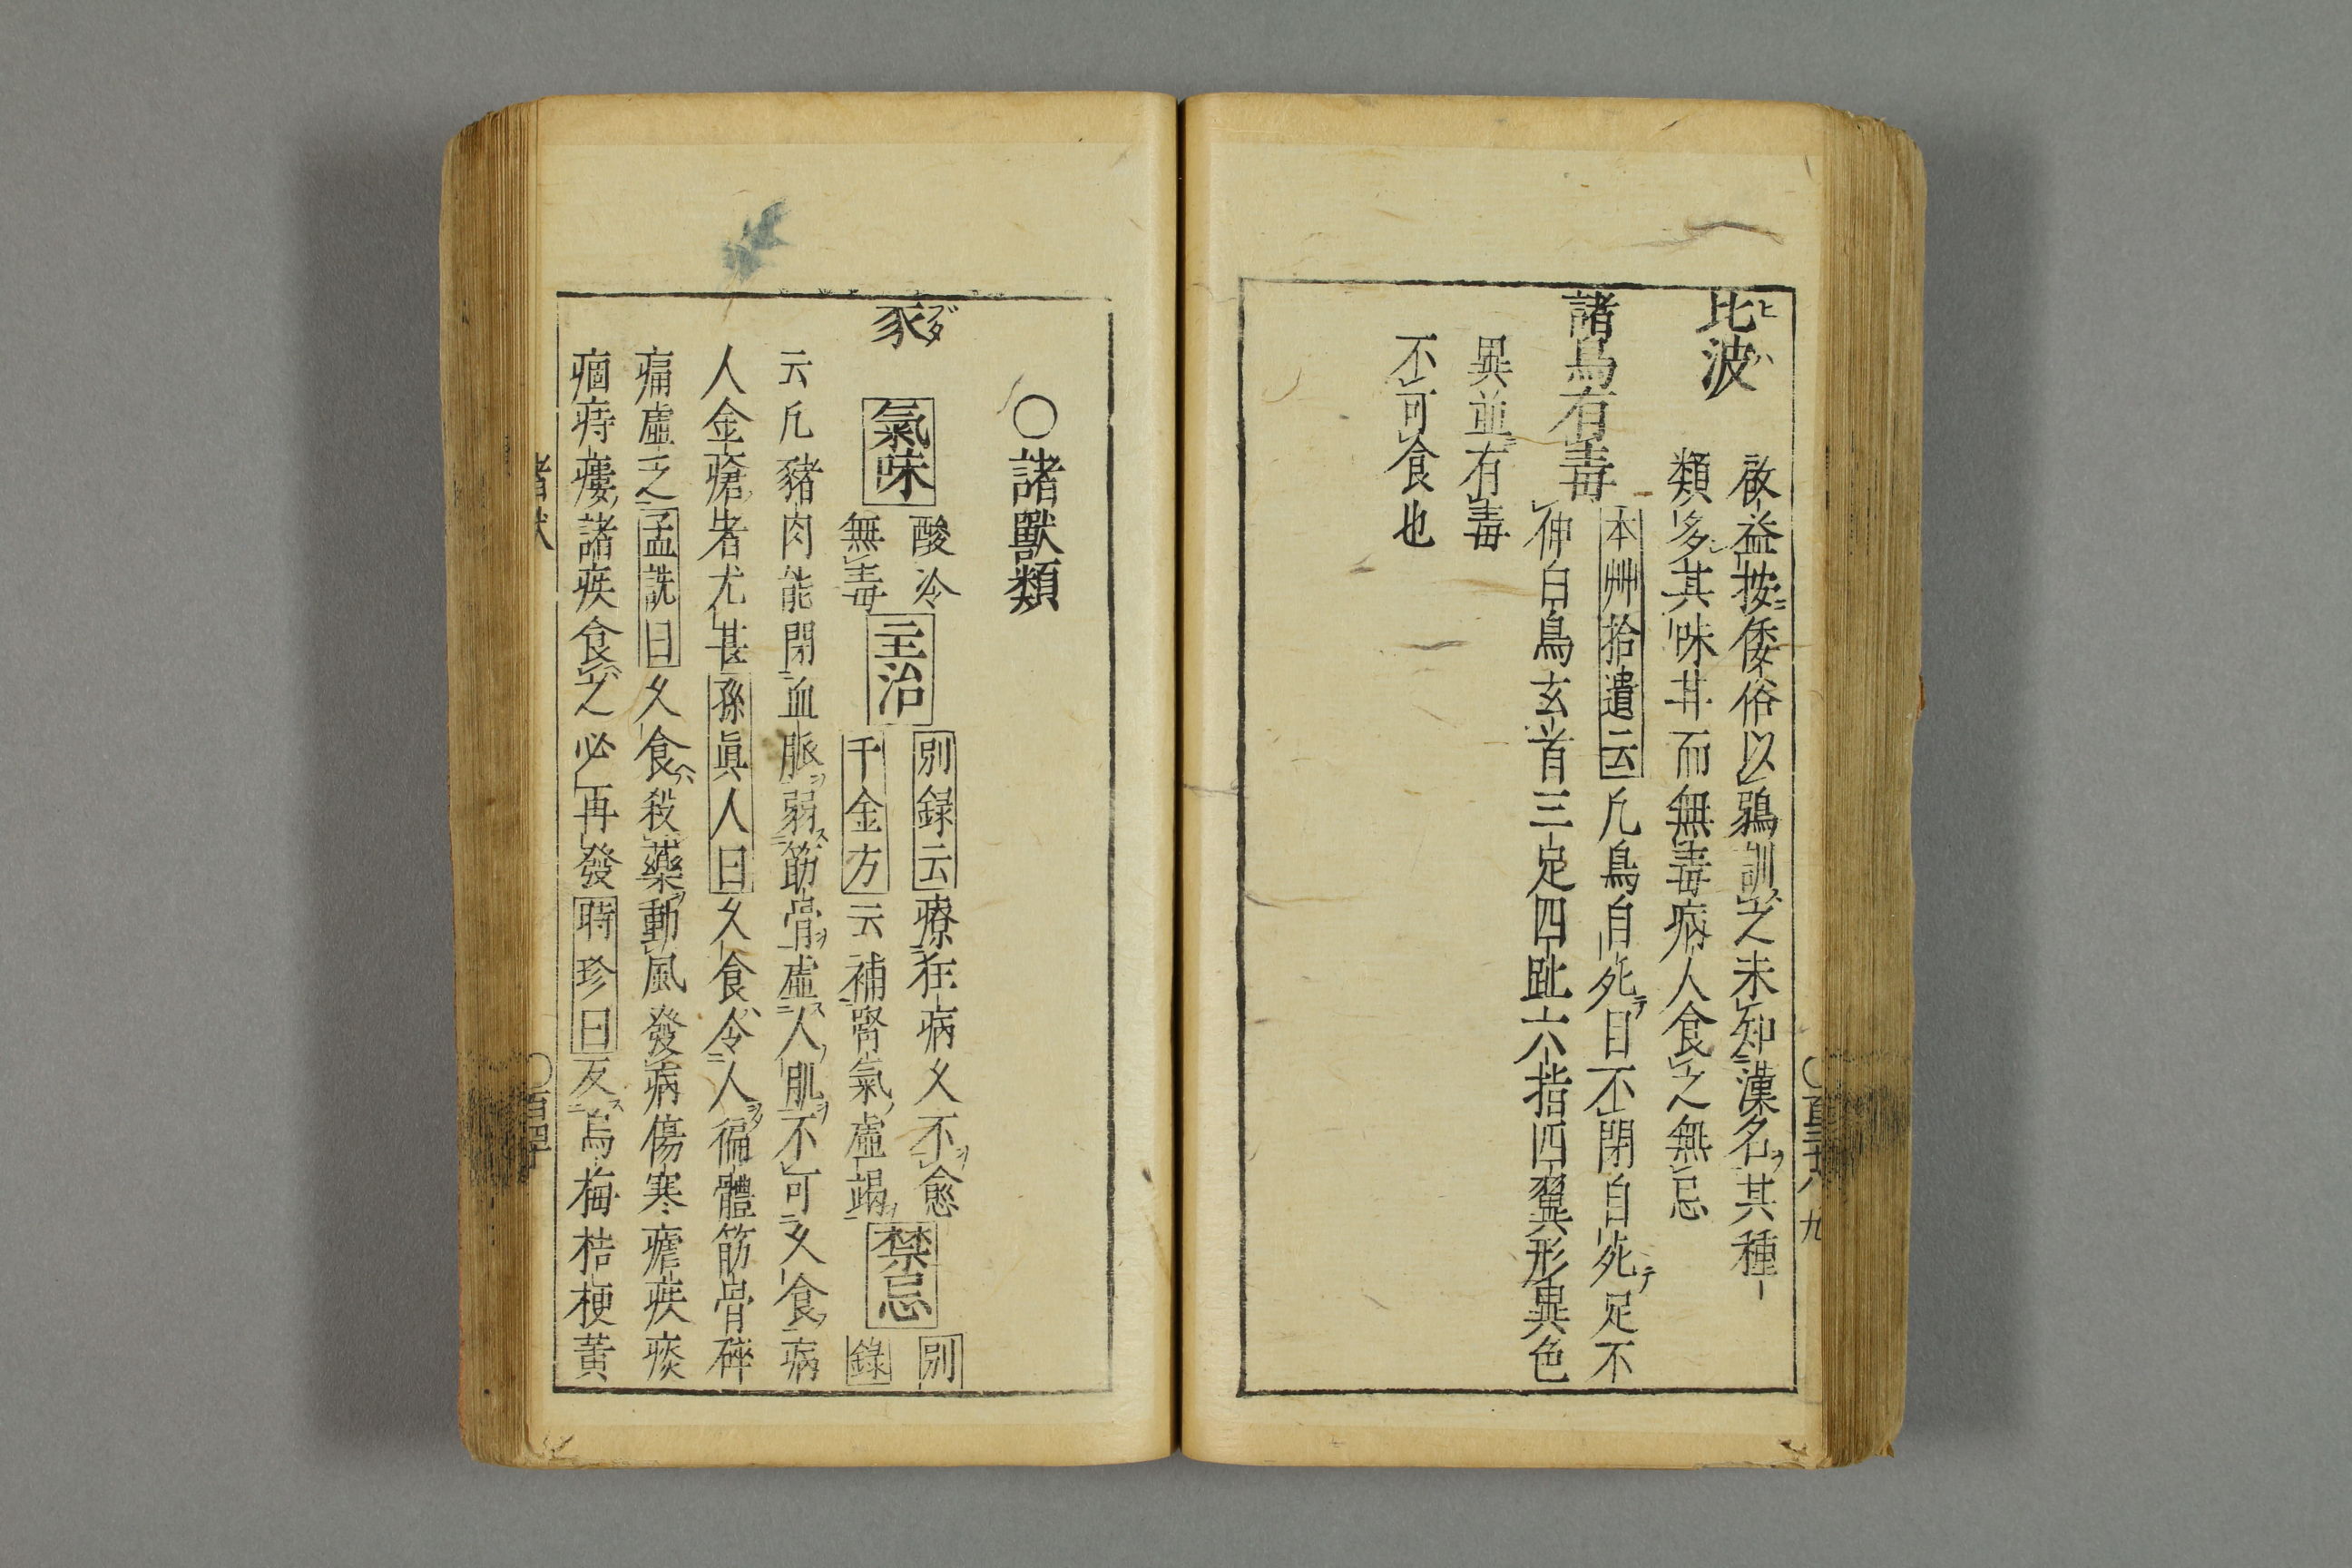 比波
啟益按倭俗以鵶訓之未知漢名其種
類多其味甘而無毒病人食之無忌
諸鳥有毒
本艸拾遺云凡鳥自死目不閉自死足不
伸白鳥玄首三足四趾六指四翼形異色
異並有毒
不可食也
〇諸獸類
豕 ブタ
氣味
酸冷
無毒
主治
別録云療狂病久不愈
千金方云補腎氣虛竭
禁忌
別
錄
云凡豬肉能閉血脈弱筋骨虛人肌不可久食病
人金瘡者尤甚孫眞人曰久食令人徧體筋骨碎
痛虛乏孟詵曰久食殺藥動風發病傷寒瘧疾痰
痼痔瘻諸疾食之必再發時珍曰反烏梅桔梗黃